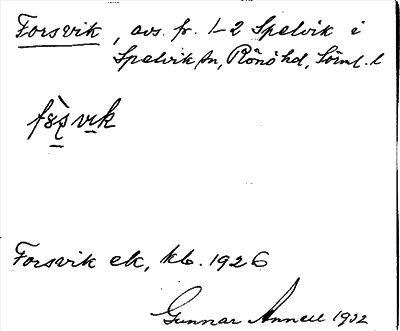 Forsvik, avs. fr. 1-2 Spelvik i
Spelvik sn, Rönö hd, Sörml. l
Forsvik ek, kb. 1926
Gunnar Annell 1932